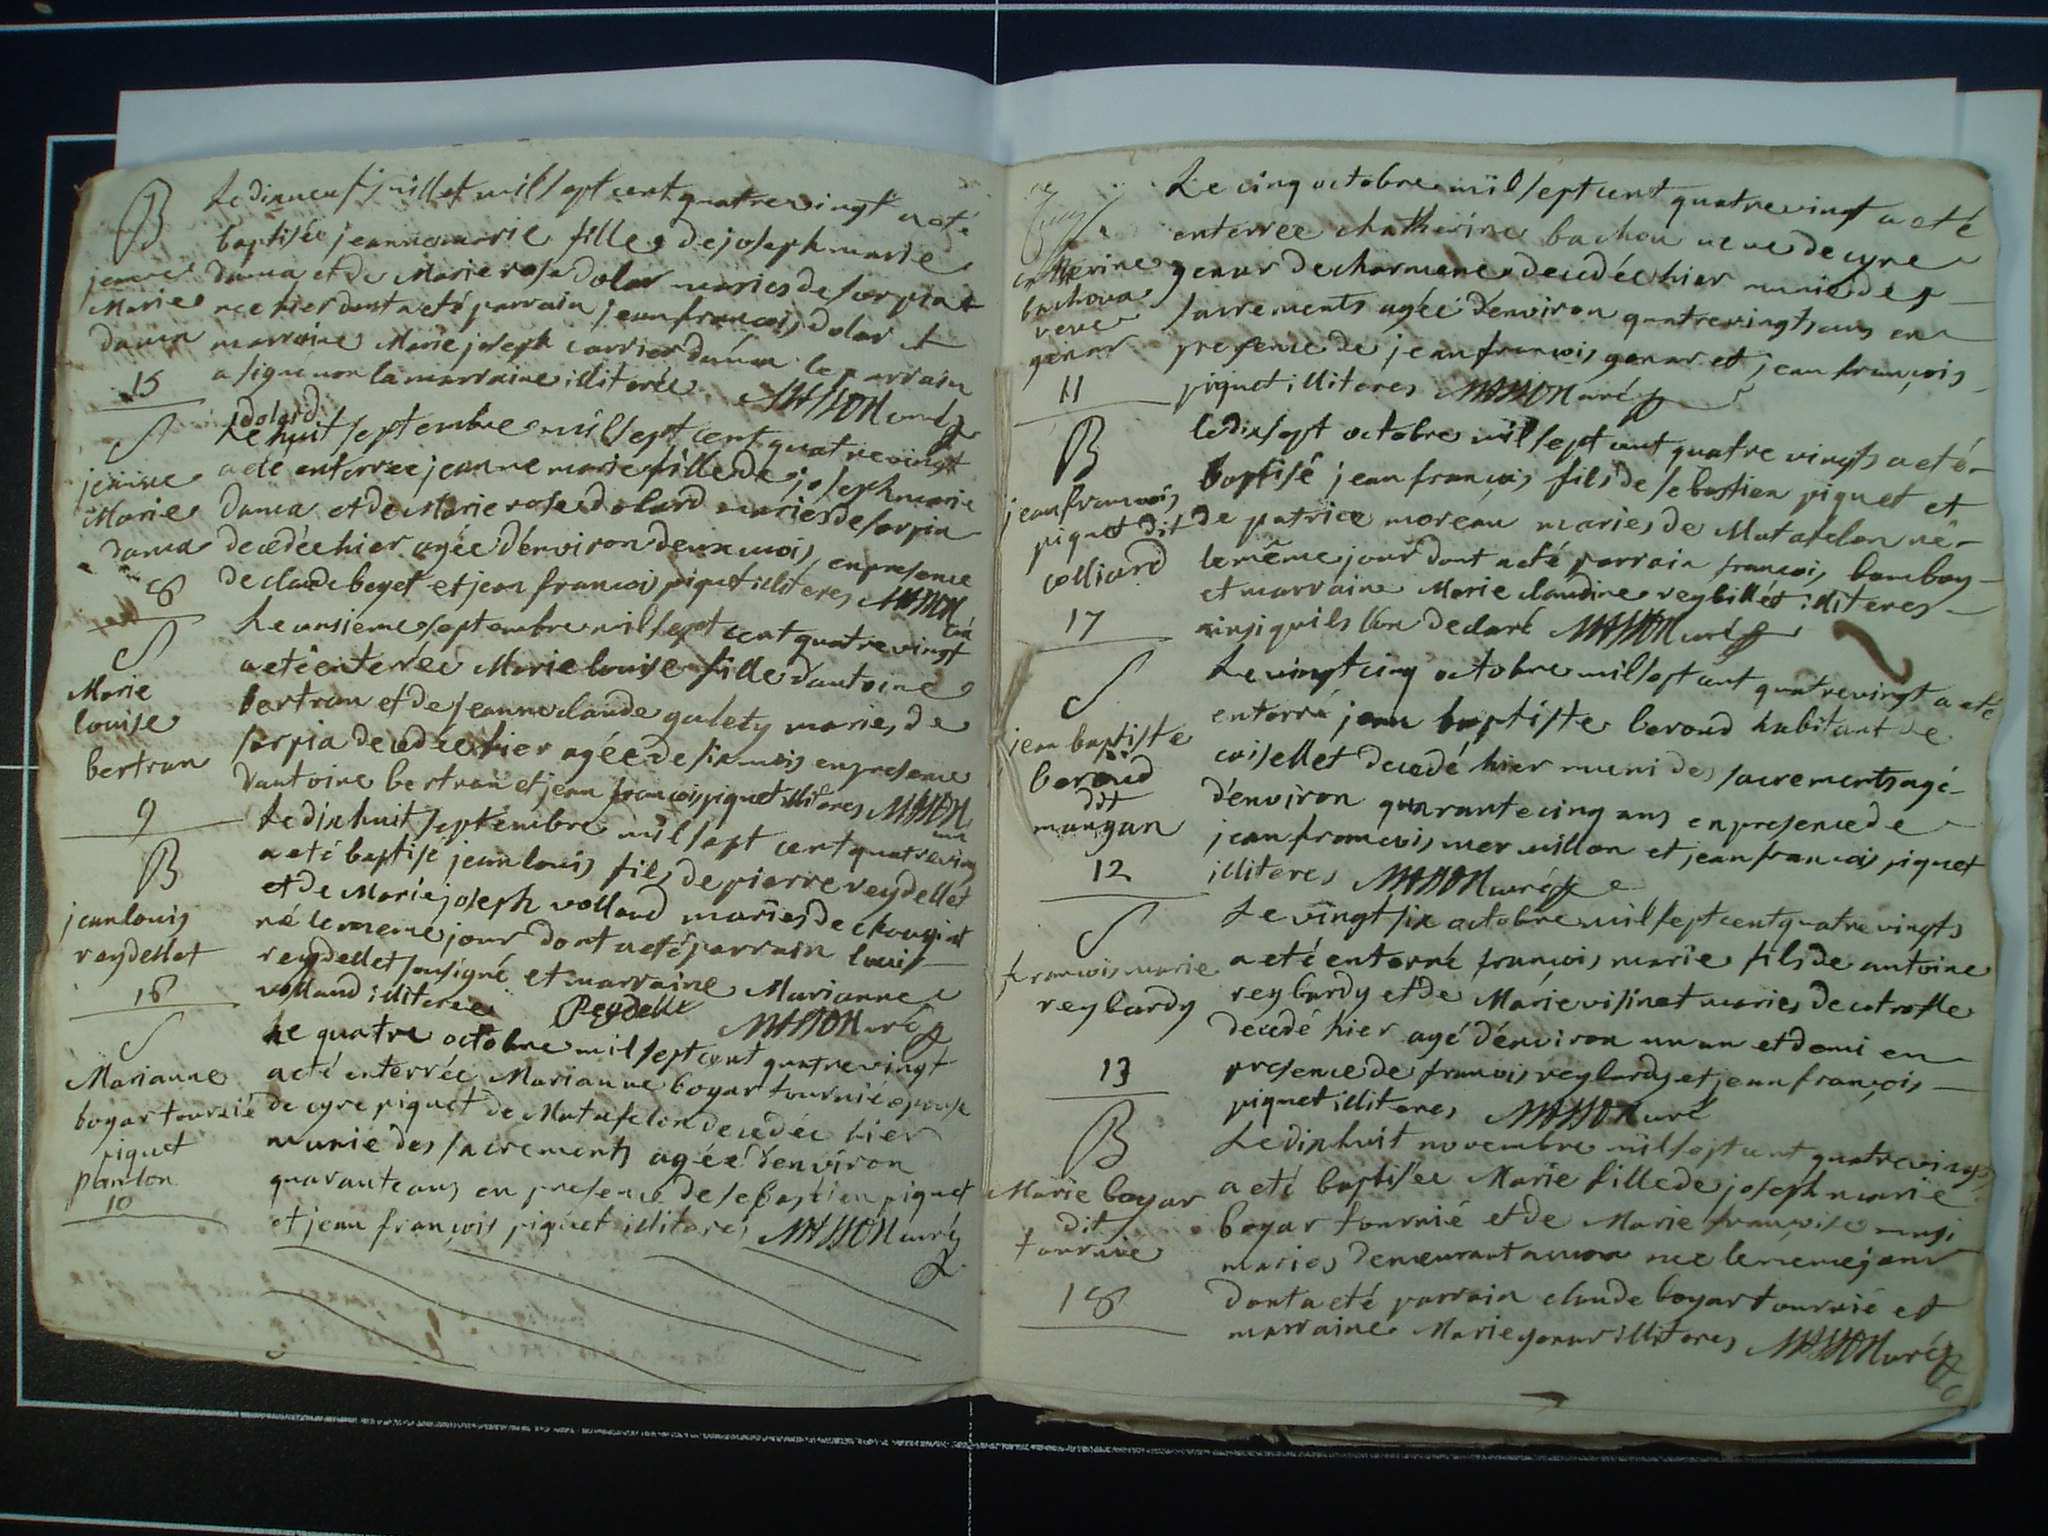 B
jeanne
Marie
dama
15
Le dixneuf juillet mil sept cent quatre vingt a eté
baptisée jeanne marie fille de joseph marie
dama et de Marie rose dolar mariés de sorpia et
nee hier dont a eté parrain jean francois dolar et
marraine Marie joseph carrier dama le parrain
a signe non la marraine illiterée MASSON curé
jdolard
S
jeanne
Marie
dama
8
Le huit septembre mil sept cent quatre vingt
a eté enterree jeanne marie fille de joseph marie
dama et de Marie rose dolard mariés de sorpia
decedée hier agée d'environ deux mois en presence
de claude boget et jean francois piquet illiteres MASSON
curé
S
Marie
louise
bertran
9
Le onsieme septembre mil sept cent quatre vingt
a eté enterrée Marie louise fille d'antoine
bertran et de jeanne claude galety mariés de
sorpia decedée hier agée de six mois en presence
d'antoine bertran et jean francois piquet illiteres MASSON
curé
B
jean louis
reydellet
16
Le dix huit septembre mil sept cent quatre ving
a eté baptisé jean louis fils de pierre reydellet
et de Marie joseph volland mariés de chougiat
né le meme jour dont a eté parrain louis
reydellet sousigné et marraine Marianne
volland illiteree Reydellet
MASSON curé
S
Marianne
boyar tournié
piquet
panilon
10
Le quatre octobre mil sept cent quatre vingt
a eté enterrée Marianne boyar tournié epouse
de cyre piquet de Matafelon decedée hier
munie des sacrements agée d'environ
quarante ans en presence de sebastien piquet
et jean françois piquet illiteres MASSON curé
S
catherine
bachoua
veve
genar
11
Le cinq octobre mil sept cent quatre vingt a eté
enterree chatherine bachou veve de cyre
genar de charmene decedée hier munie des
sacrements agée d'environ quatre vingts ans en
presence de jean francois genar et jean françois
piquet illiteres MASSON curé
B
jean francois
piquet dit
colliard
17
le dix sept octobre mil sept cent quatre vingts a eté
baptisé jean françois fils de sebastien piquet et
de patrice moreau mariés de Matafelon né
le même jour dont a eté parrain françois bomboy
et marraine Marie claudine reybillet illiteres
ainsi quils l'on declaré MASSON curé
S
jean baptiste
beroud
dit
mangan
12
Le vingt cinq octobre mil sept cent quatre vingt a eté
enterré jean baptiste beroud habitant de
coisellet decedé hier muni des sacrements agé
d'environ quarante cinq ans en presence de
jean francois mermillon et jean francois piquet
illiteres MASSON curé
S
francois marie
reybardy
13
Le vingt six octobre mil sept cent quatre vingts
a eté enterré françois marie fils de antoine
reybardy et de Marie visinet mariés de cotrofle
decedé hier agé d'environ un an et demi en
presence de francois reybardy et jean françois
piquet illiteres MASSON curé
B
Marie boyar
dit
tournie
18
Le dix huit novembre mil sept cent quatre vingt
a eté baptisée Marie fille de joseph marie
boyar tournié et de Marie françoise musi
mariés demeurant a nee le meme jour
dont a eté parrain claude boyar tournié et
marraine Marie genar illiteres MASSON curé